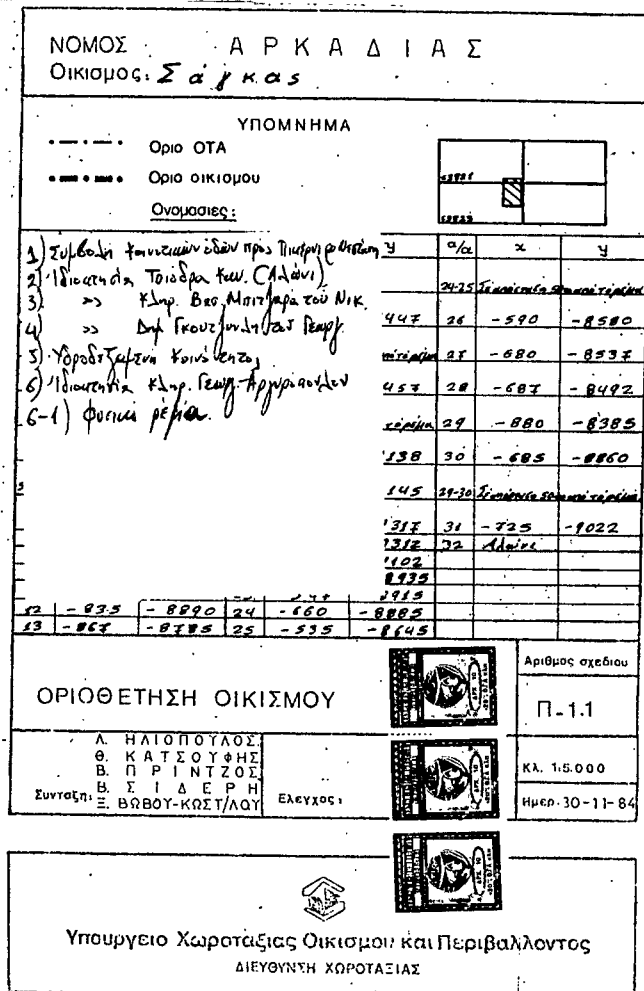 ΝΟΜΟΣ ΑΡΚΑΔΙΑΣ
Οικισμος: Σάγκας
ΥΠΟΜΝΗΜΑ
Οριο ΟΤΑ
Οριο οικισμου
Ονομασιες:
1) Συμβολή κοινοτικών οδών προς
2) Ιδιοκτησία Τσιόδρα Κων. (Αλώνι)
3) >> Κληρ. Βασ. Μπιτζαρα του Νικ.
4) >> Δημ του Γεωργ.
5) Υδροδεξαμενή Κοινότητας
6) Ιδιοκτησία Κληρ. Γεωργ. Αργυροπουλου
6-1) Φυσικό ρέμα.
y α/α x y
24-25
447 26 -590 -8580
27 -680 -8537
457 28 -687 -8492
29 -880 -8385
138 30 -685 -8860
145 29-30
317 31 -725 -9022
312 32 Αλώνι
102
8935
8915
12 -835 -8890 24 -660 -8885
13 -867 -8785 25 -535 -8645
ΟΡΙΟΘΕΤΗΣΗ ΟΙΚΙΣΜΟΥ
Αριθμος σχεδιου
Π-1.1
Συνταξη:
Λ. ΗΛΙΟΠΟΥΛΟΣ
Θ. ΚΑΤΣΟΥΦΗΣ
Β. ΠΡΙΝΤΖΟΣ
Β. ΣΙΔΕΡΗ
Ξ. ΒΩΒΟΥ-ΚΩΣΤ/ΛΟΥ
Ελεγχος:
Κλ. 1:5.000
Ημερ. 30-11-84
Υπουργειο Χωροταξιας Οικισμου και Περιβαλλοντος
ΔΙΕΥΘΥΝΣΗ ΧΩΡΟΤΑΞΙΑΣ